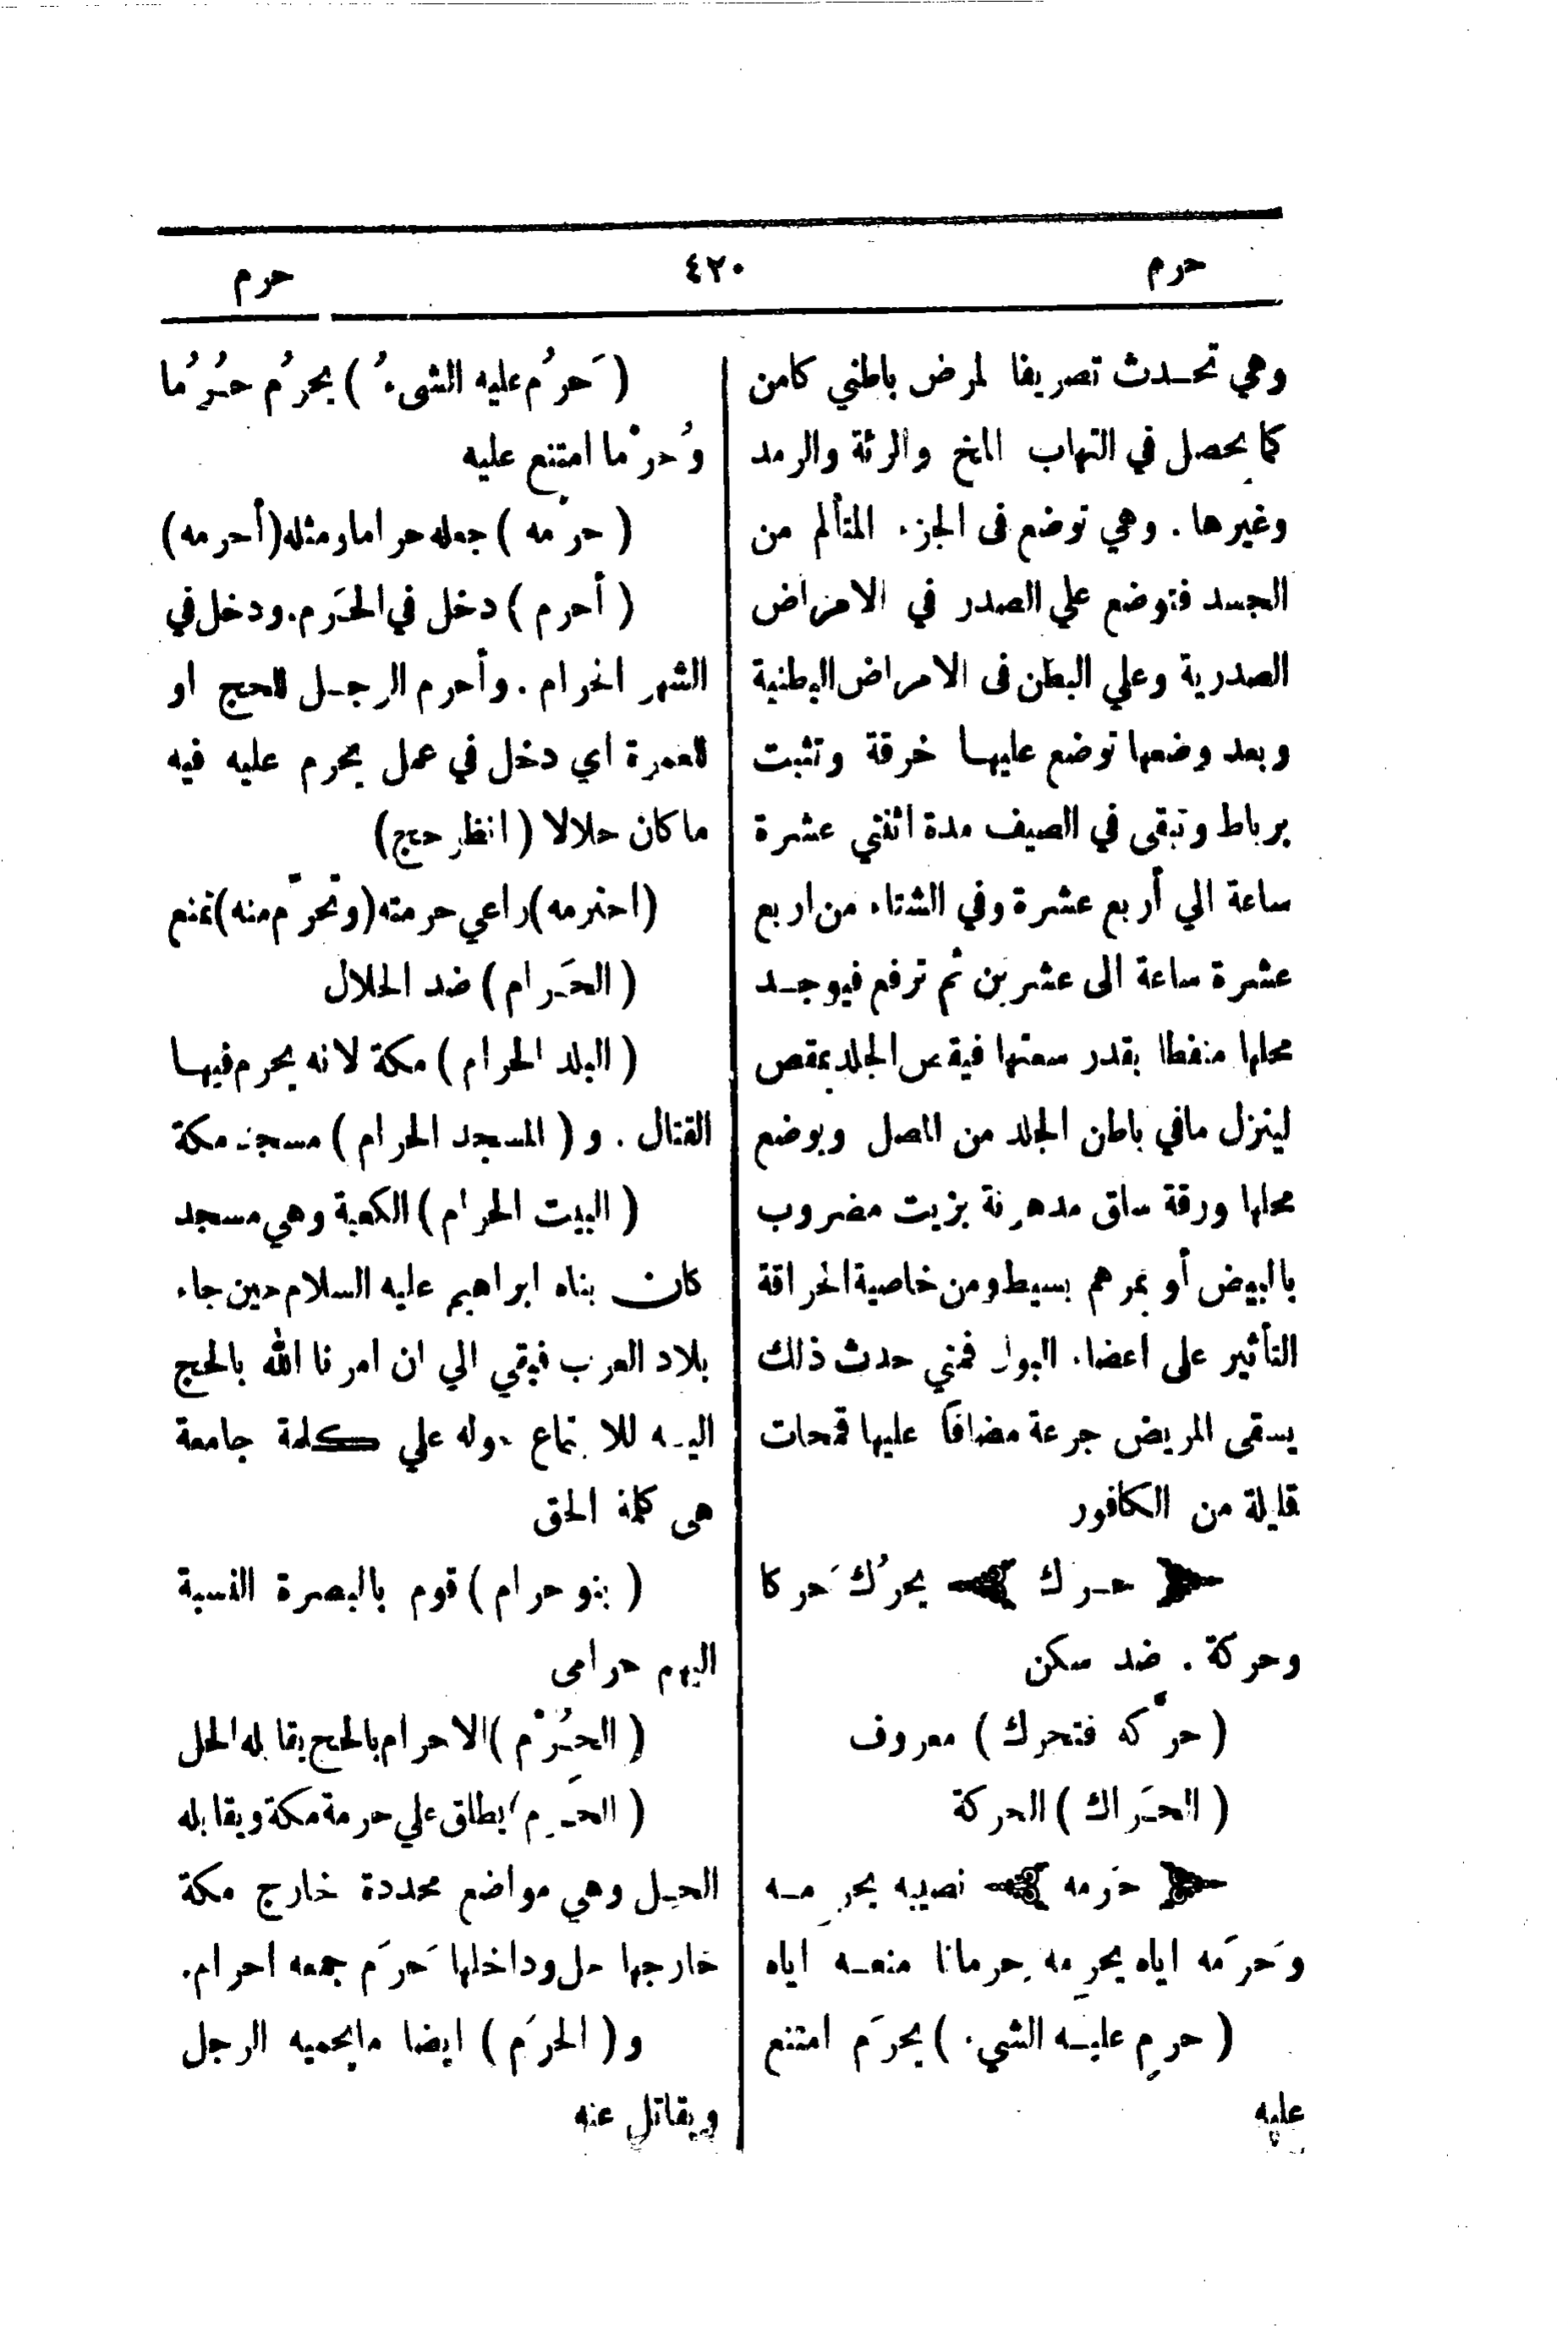 حرم ٤٢٠ حرم
وهي تحـدث تصريفا لمرض باطني كامن
كما يحصل في التهاب المخ والرئة والرمد
وغيرها . وهي توضع فى الجزء المتألم من
الجسد فتوضع علي الصدر في الامراض
الصدرية وعلي البطن فى الامراض البطنية
وبعد وضعها توضع عليهـا خرقة وتثبت
برباط وتبقى في الصيف مدة اثنتي عشرة
ساعة الي أربع عشرة وفي الشتاء من اربع
عشرة ساعة الى عشرين ثم ترفع فيوجـد
محلها منفطا بقدر سعتها فيقص الجلد بمقص
لينزل مافي باطن الجلد من المصل ويوضع
محلها ورقة ساق مدهونة بزيت مضروب
بالبيض أو بمرهم بسيط ومن خاصية الحراقة
التأثير على اعضاء البول فمتي حدث ذلك
يسقى المريض جرعة مضافاً عليها قمحات
قليلة من الكافور
حـرك يحرُك حَركا
وحركة . ضد سكن
( حرّكه فتحرك ) معروف
( الحَراك ) الحركة
حَرمه نصيبه يحرِمـه
وحَرَمه اياه يحرِمه حِرمانا منعـه اياه
( حرِم عليـه الشيء ) يحرَم امتنع
عليه
( حَرُم عليه الشىءُ ) يحرُم حُرُما
وحُرْما امتنع عليه
( حرّمه ) جعله حراما ومثله (أحرمه)
( أحرم ) دخل في الحَرم. ودخل في
الشهر الحرام . وأحرم الرجـل للحج او
للعمرة اي دخل في عمل يحرم عليه فيه
ما كان حلالا ( انظر حجج)
(احترمه) راعي حرمته (وتحرّم منه) تمنع
( الحَرام ) ضد الحلال
( البلد الحرام ) مكة لانه يحرم فيهـا
القتال . و ( المسجد الحرام ) مسجد مكة
( البيت الحرام ) الكعبة وهي مسجد
كان بناه ابراهيم عليه السلام حين جاء
بلاد العرب فبقي الي ان امرنا الله بالحج
اليـه للاجتماع حوله علي كلمة جامعة
هى كلمة الحق
( بنو حرام ) قوم بالبصرة النسبة
اليهم حرامى
( الحُرْم ) الاحرام بالحج يقابله الحل
( الحَرم ) يطلق علي حرمة مكة ويقابله
الحِل وهي مواضع محددة خارج مكة
خارجها حل وداخلها حَرَم جمعه احرام.
و ( الحرَم ) ايضا مايحميه الرجل
ويقاتل عنه